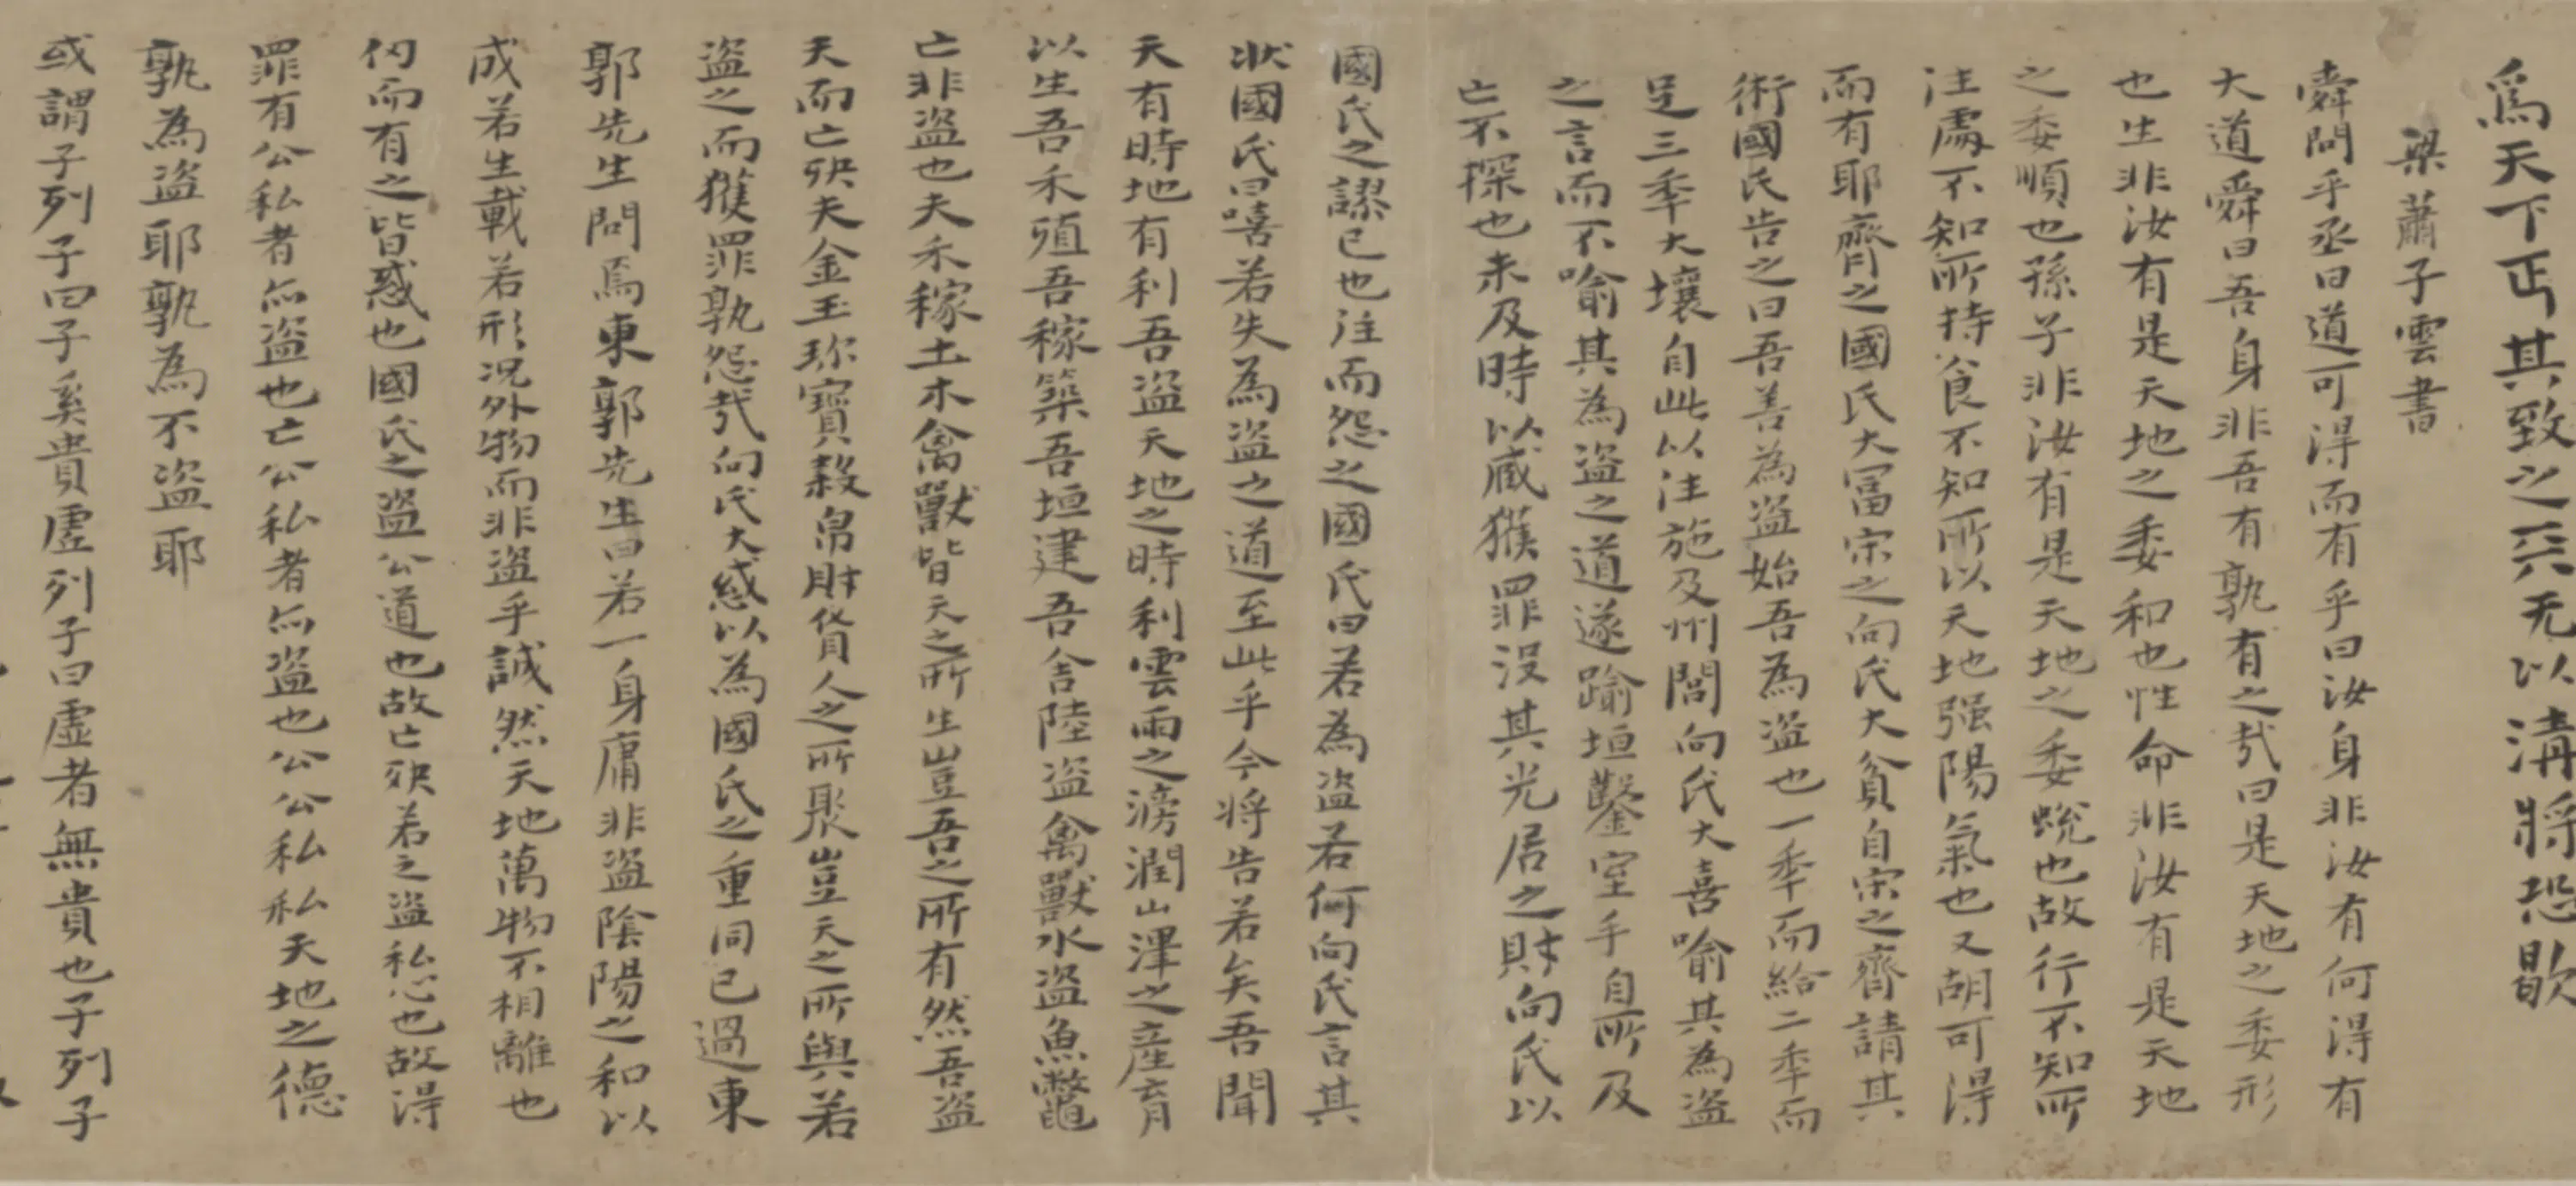 爲天下正其致之一天无以清將恐歇
梁蕭子雲書
舜問乎丞曰道可得而有乎曰汝身非汝有何得有
大道舜曰吾身非吾有孰有之哉曰是天地之委形
也生非汝有是天地之委和也性命非汝有是天地
之委順也孫子非汝有是天地之委蛻也故行不知所
往處不知所持食不知所以天地强陽氣也又胡可得
而有耶齊之國氏大富宋之向氏大貧自宋之齊請其
術國氏告之曰吾善為盗始吾為盗也一季而給二季而
足三季大壤自此以往施及州閭向氏大喜喻其為盗
之言而不喻其為盗之道遂踰垣鑿室手自所及
亡不探也未及時以臧獲罪没其先居之財向氏以
國氏之謬已也往而怨之國氏曰若為盗若何向氏言其
狀國氏曰嘻若失為盗之道至此乎今將告若矣吾聞
天有時地有利吾盗天地之時利雲雨之滂潤山澤之産育
以生吾禾殖吾稼築吾垣建吾舍陸盗禽獸水盗魚鼈
亡非盗也夫禾稼土木禽獸皆天之所生豈吾之所有然吾盗
天而亡殃夫金玉珎寶穀帛財貨人之所聚豈天之所與若
盗之而獲罪孰怨哉向氏大惑以為國氏之重罔已過東
郭先生問焉東郭先生曰若一身庸非盗陰陽之和以
成若生載若形况外物而非盗乎誠然天地萬物不相離也
仞而有之皆惑也國氏之盗公道也故亡殃若之盗私心也故得
罪有公私者亦盗也亡公私者亦盗也公公私私天地之德
孰為盗耶孰為不盗耶
或謂子列子曰子奚貴虚列子曰虚者無貴也子列子